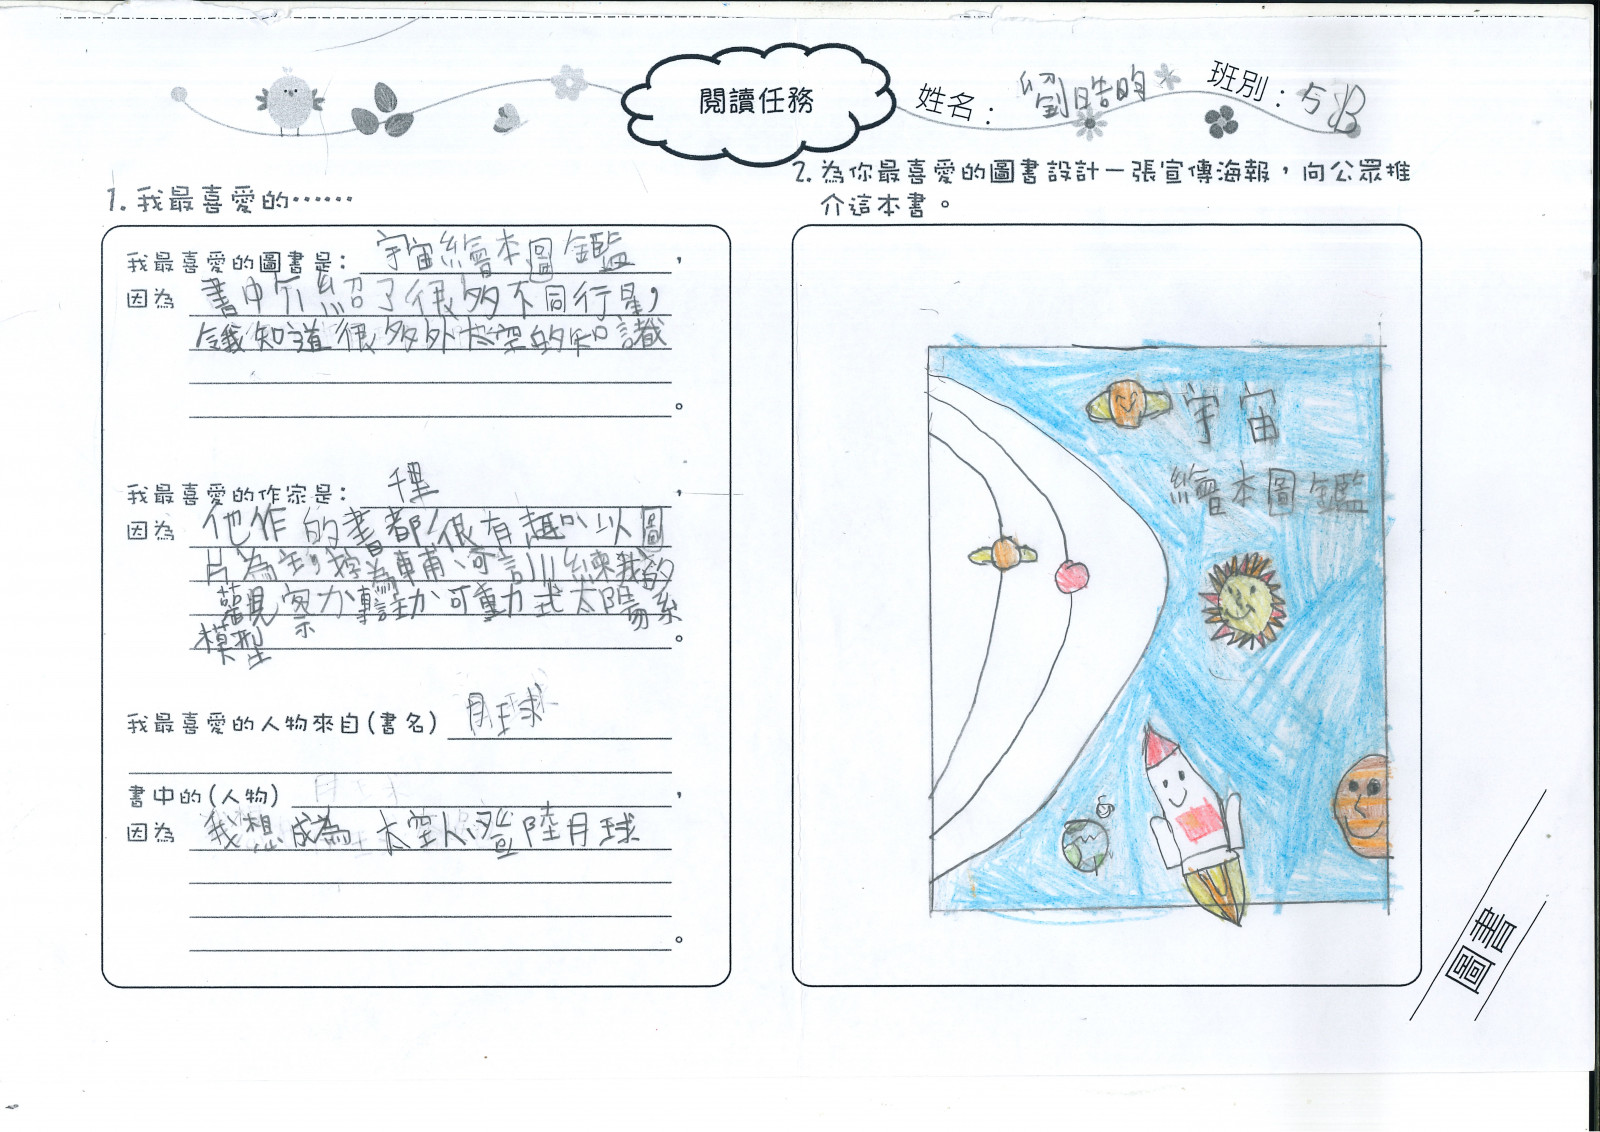 閱讀任務
姓名：劉晧昀
班別：5B
1. 我最喜愛的……
我最喜愛的圖書是：宇宙繪本圖鑑，
因為 書中介紹了很多不同行星，
知道很多外太空的知識
。
我最喜愛的作家是：千里，
因為 他作的書都很有趣，以圖
片為主，字為輔，可訓練我的
觀察力，轉動可動式太陽系
模型。
我最喜愛的人物來自(書名) 月球
書中的(人物)，
因為 我想成為太空人登陸月球
。
2. 為你最喜愛的圖書設計一張宣傳海報，向公眾推
介這本書。
宇宙
繪本圖鑑
圖書